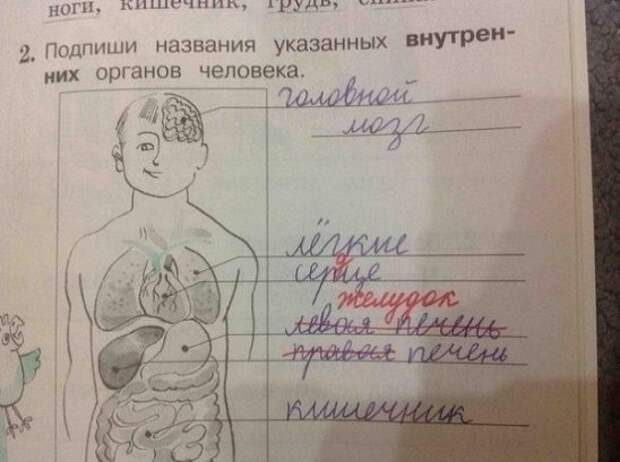 ноги, кишечник, грудь,
2. Подпиши названия указанных внутрен-
них органов человека.
головной
мозг
лёгкие
сердце
желудок
левая печень
правая печень
кишечник